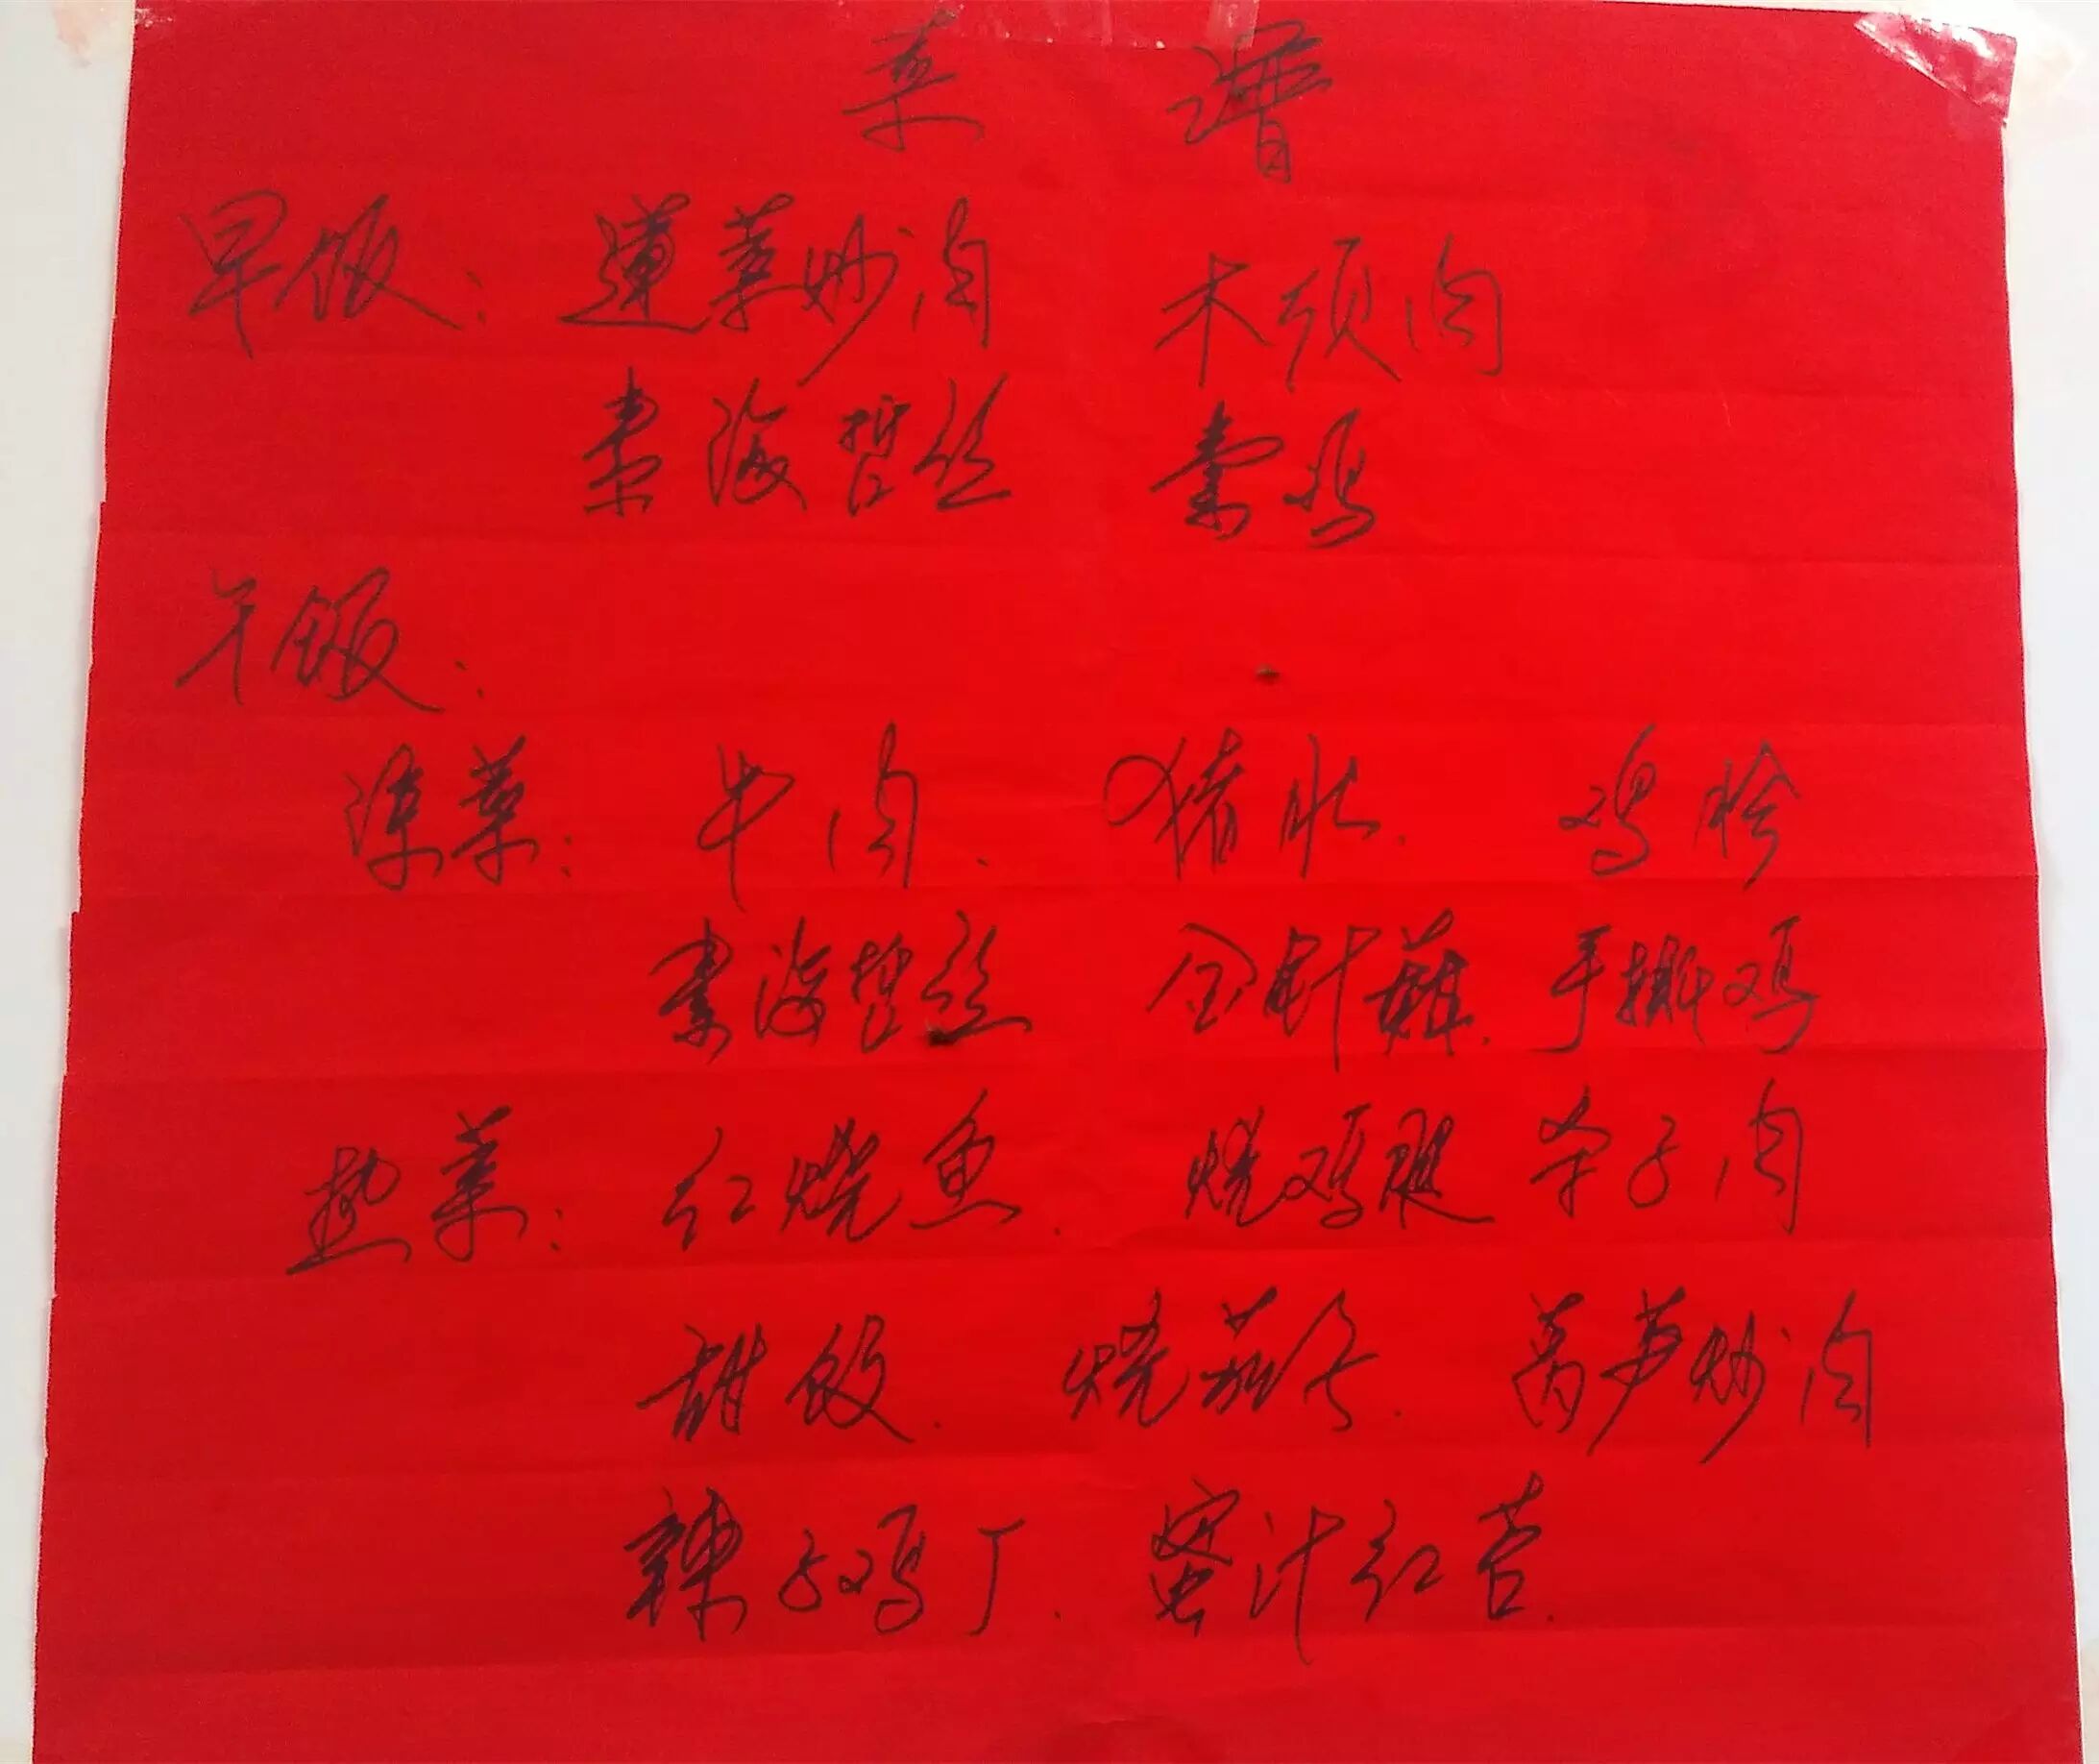 菜 谱
早饭： 莲菜炒肉 木须肉
素海哲丝 素鸡
午饭：
凉菜： 牛肉． 猪肚． 鸡胗
素海哲丝 金针菇． 手撕鸡
热菜： 红烧鱼． 烧鸡腿 条子肉
甜饭． 烧茄 葫芦炒肉
辣子鸡丁． 蜜汁红苕．